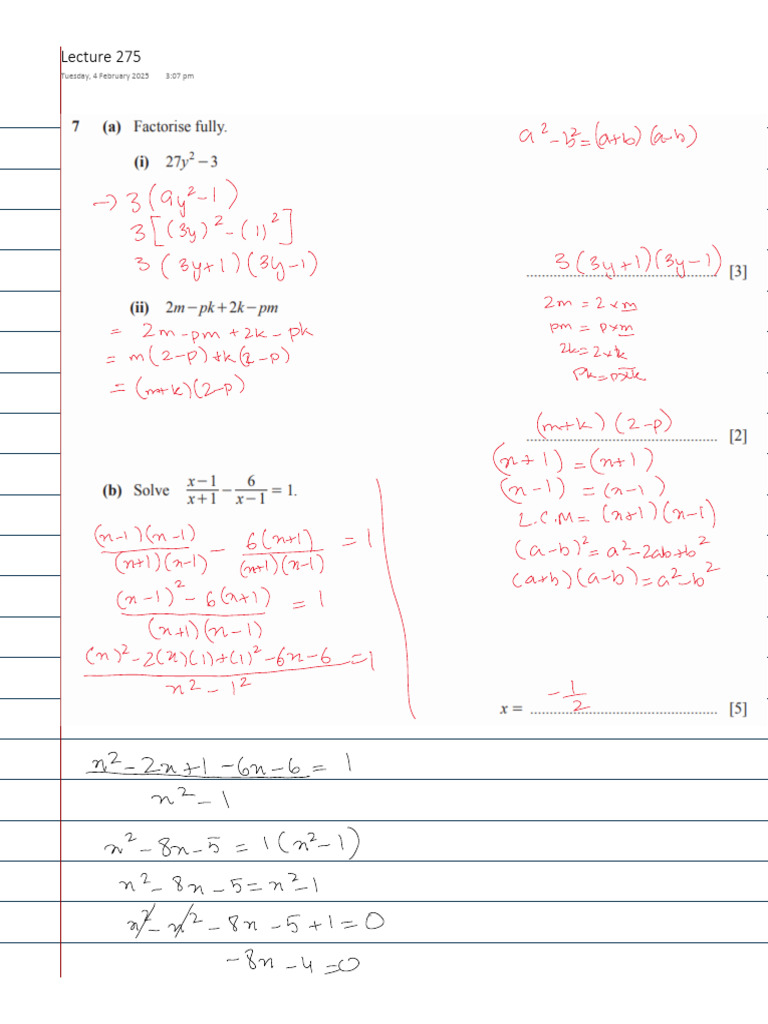 Lecture 275
Tuesday, 4 February 2025 3:07 pm
7 (a) Factorise fully.
a² - b² = (a+b) (a-b)
(i) 27y² – 3
→ 3 (9y² - 1)
3 [(3y)² - (1)²]
3 (3y+1) (3y-1)
3 (3y+1)(3y-1) [3]
(ii) 2m – pk + 2k – pm
= 2m - pm + 2k - pk
= m(2-p) + k(2-p)
= (m+k)(2-p)
2m = 2 × m
pm = p × m
2k = 2 × k
pk = p × k
(m+k) (2-p) [2]
(b) Solve x – 1 / x + 1 – 6 / x – 1 = 1.
(x-1)(x-1) / (x+1)(x-1) - 6(x+1) / (x+1)(x-1) = 1
(x-1)² - 6(x+1) / (x+1)(x-1) = 1
(x)² - 2(x)(1) + (1)² - 6x - 6 / x² - 1² = 1
(x+1) = (x+1)
(x-1) = (x-1)
L.C.M = (x+1)(x-1)
(a-b)² = a² - 2ab + b²
(a+b)(a-b) = a² - b²
x = -1/2 [5]
x² - 2x + 1 - 6x - 6 / x² - 1 = 1
x² - 8x - 5 = 1(x² - 1)
x² - 8x - 5 = x² - 1
x² - x² - 8x - 5 + 1 = 0
-8x - 4 = 0